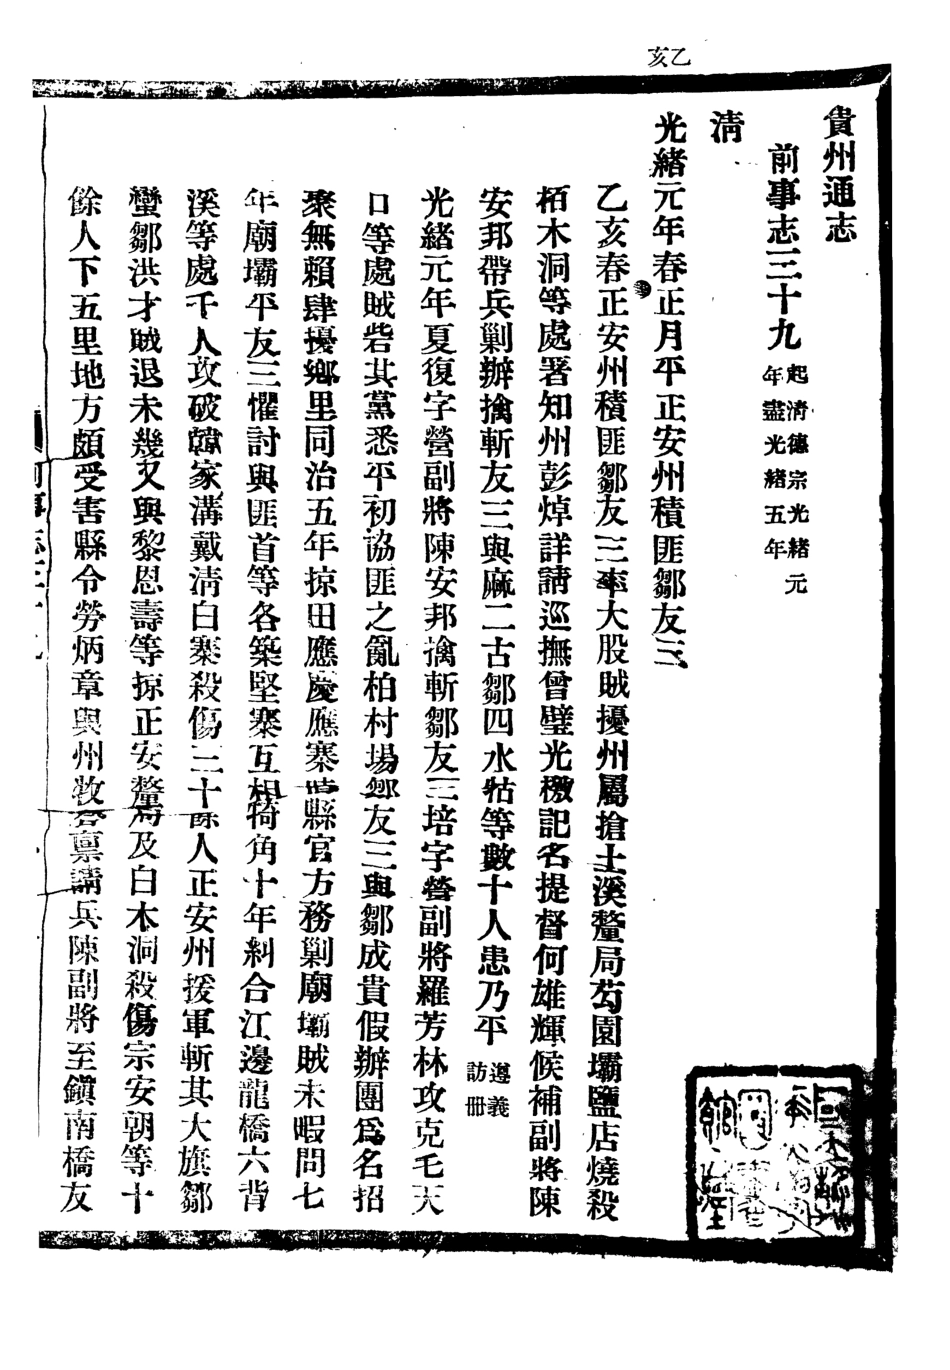 乙亥
貴州通志
前事志三十九
起清德宗光緒元
年盡光緒五年
清
光緒元年春正月平正安州積匪鄒友三
乙亥春正安州積匪鄒友三率大股賊擾州屬搶土溪釐局芶園壩鹽店燒殺
栢木洞等處署知州彭焯詳請巡撫曾璧光檄記名提督何雄輝候補副將陳
安邦帶兵剿辦擒斬友三與麻二古鄒四水牯等數十人患乃平
遵義
訪冊
光緒元年夏復字營副將陳安邦擒斬鄒友三培字營副將羅芳林攻克毛天
口等處賊砦其黨悉平初協匪之亂柏村場鄒友三與鄒成貴假辦團爲名招
聚無賴肆擾鄉里同治五年掠田應慶應寨時縣官方務剿廟壩賊未暇問七
年廟壩平友三懼討與匪首等各築堅寨互相犄角十年糾合江邊龍橋六背
溪等處千人攻破韓家溝戴淸白寨殺傷三十餘人正安州援軍斬其大旗鄒
蠻鄒洪才賊退未幾又與黎恩壽等掠正安釐局及白木洞殺傷宗安朝等十
餘人下五里地方頗受害縣令勞炳章與州牧會稟請兵陳副將至鎭南橋友